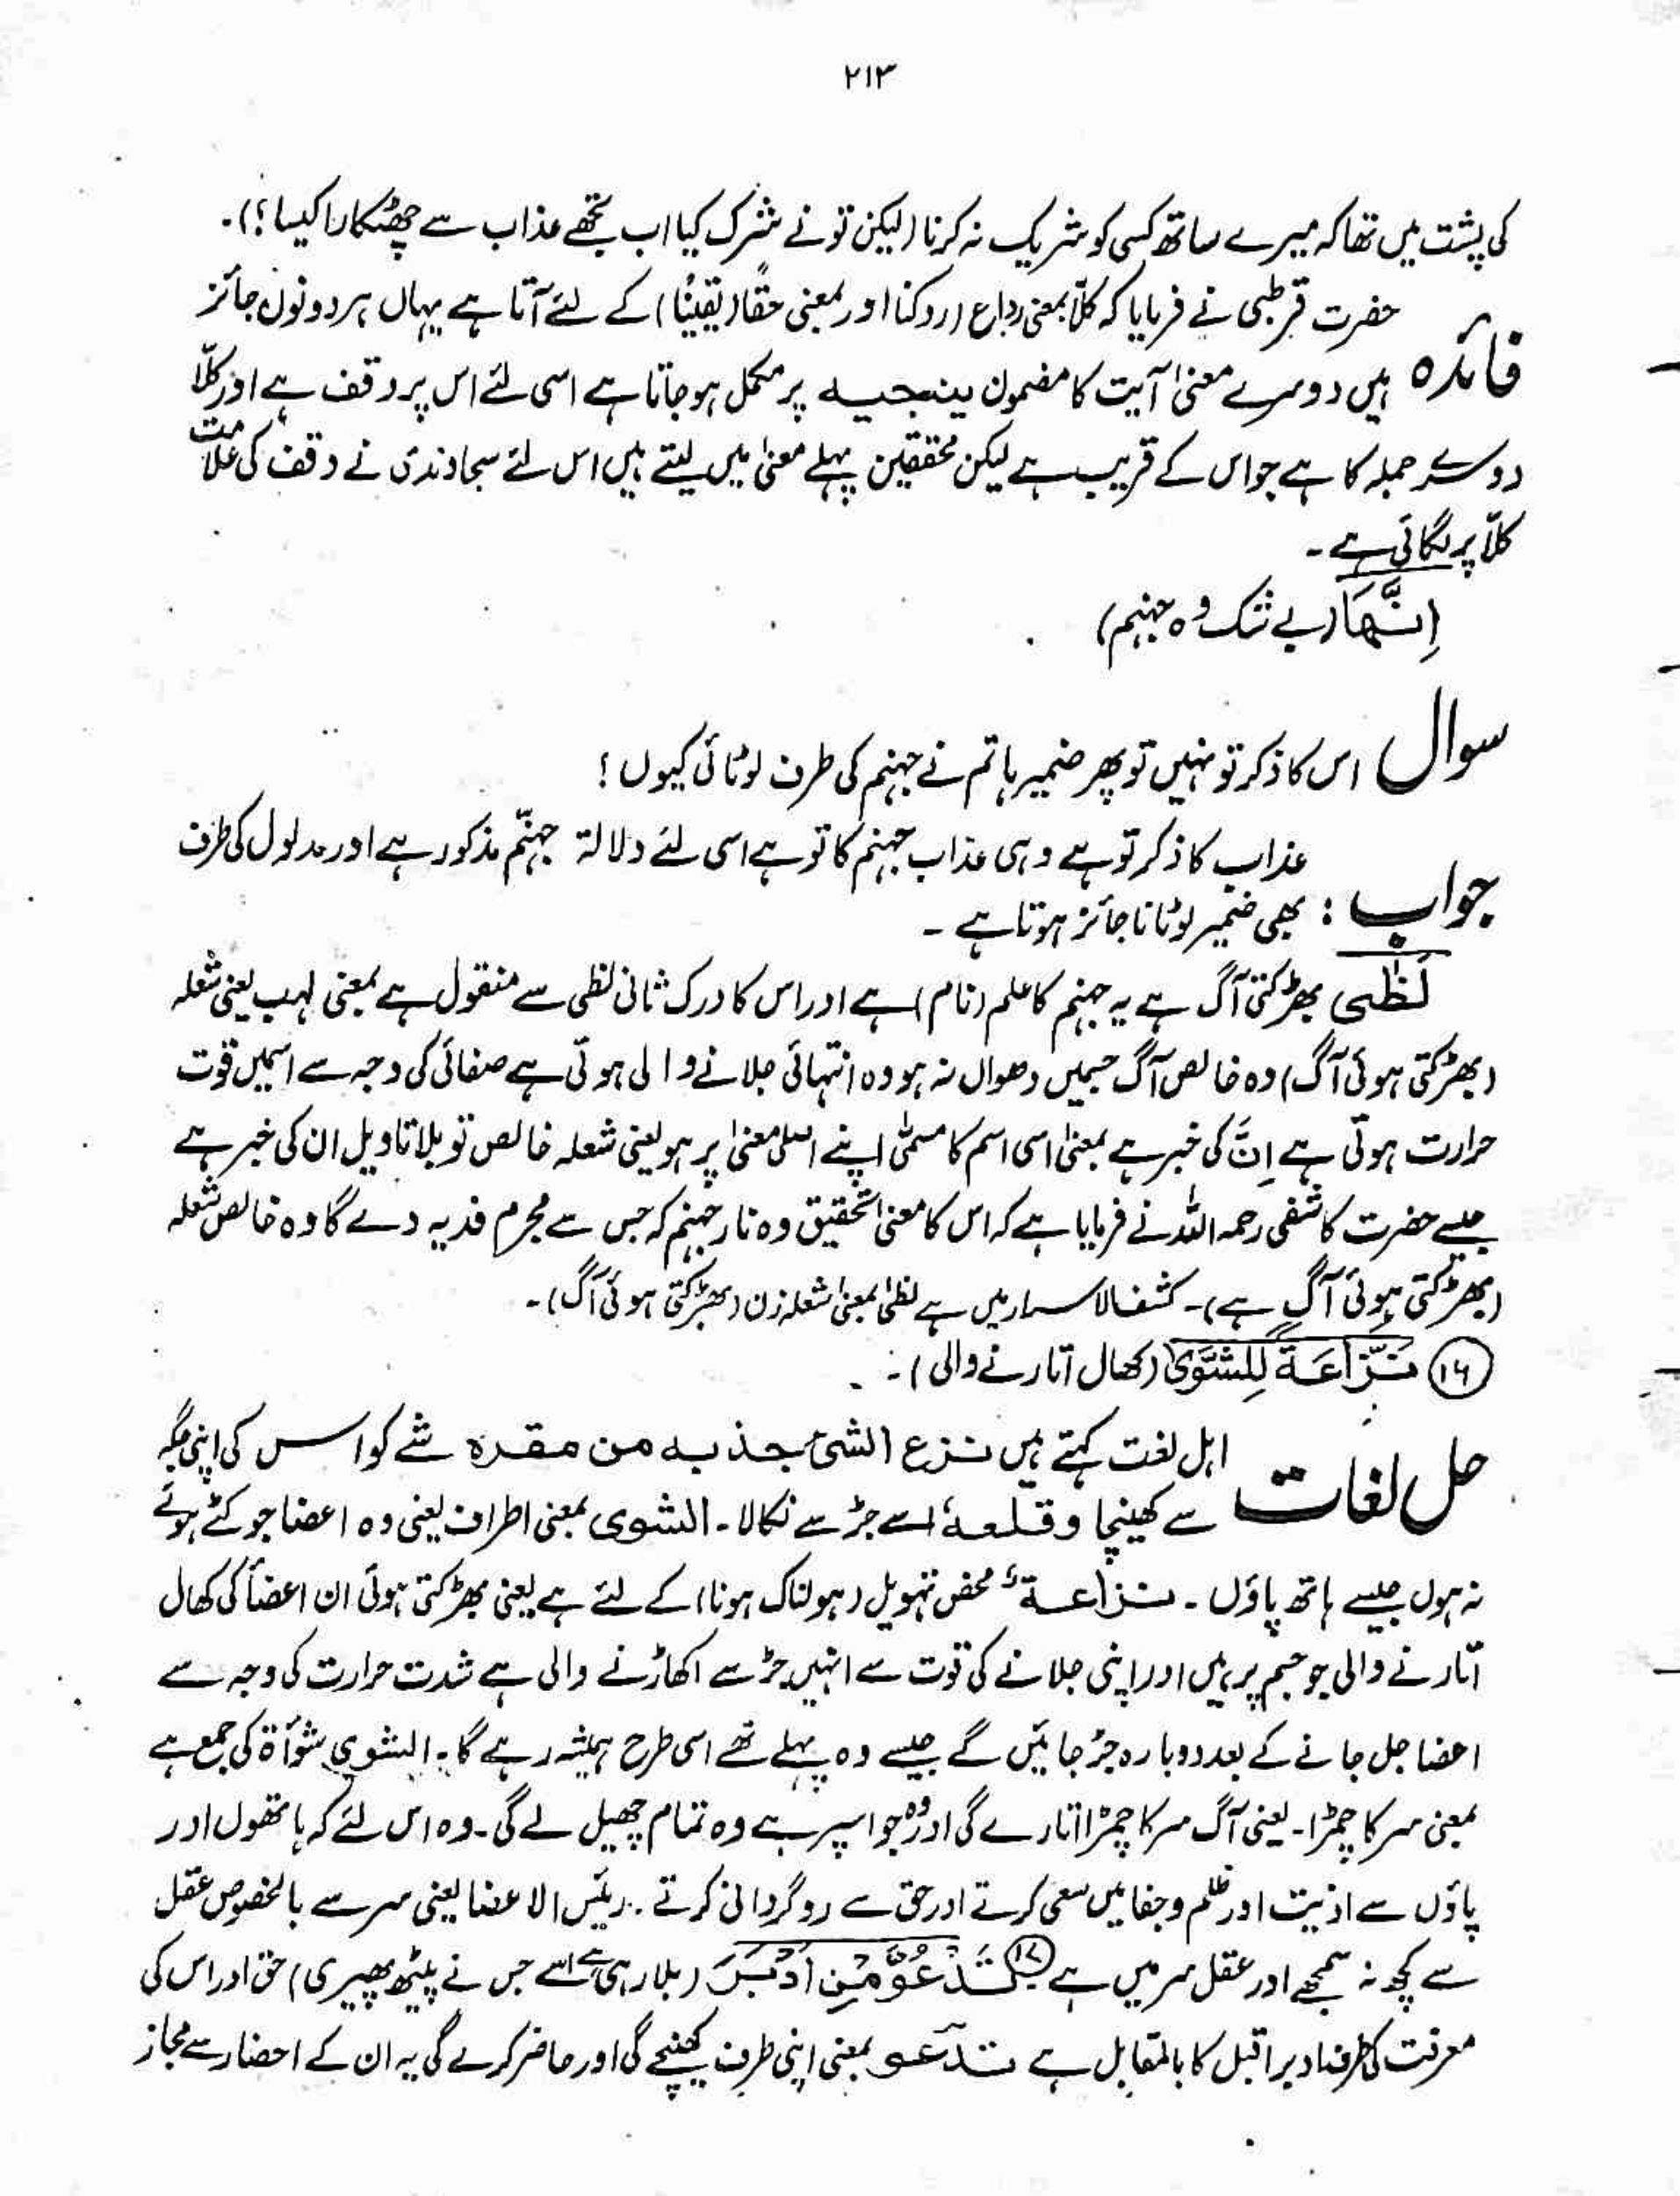 ۲۱۳
کی پشت میں تھا کہ میرے ساتھ کسی کو شریک نہ کرنا (لیکن تو نے شرک کیا اب تجھے عذاب سے چھٹکارا کیسا؟)۔
حضرت قرطبی نے فرمایا کہ کلّا بمعنی رداع (روکنا اور بمعنی حقًا (یقینًا) کے لئے آتا ہے یہاں ہر دونوں جائز
فائدہ ہیں دوسرے معنیٰ آیت کا مضمون ینجیہ پر مکمل ہو جاتا ہے اسی لئے اس پر وقف ہے اور کلّا
دوسرے جملہ کا ہے جو اس کے قریب ہے لیکن محققین پہلے معنیٰ میں لیتے ہیں اس لئے سجاوندی نے وقف کی علامت
کلّا پر لگائی ہے ۔
(اِنَّھَا (بے شک وہ جہنم)
سوال اس کا ذکر تو نہیں تو پھر ضمیر ہا تم نے جہنم کی طرف لوٹائی کیوں !
عذاب کا ذکر تو ہے وہی عذاب جہنم کا تو ہے اسی لئے دلالۃ جہنّم مذکور ہے اور مدلول کی طرف
جواب : بھی ضمیر لوٹانا جائز ہوتا ہے ۔
لَظٰی بھڑکتی آگ ہے یہ جہنم کا علم (نام) ہے اور اس کا درک ثانی لظی سے منقول ہے بمعنی لہب یعنی شعلہ
(بھڑکتی ہوئی آگ) وہ خالص آگ جسمیں دھواں نہ ہو وہ انتہائی جلانے والی ہوتی ہے صفائی کی وجہ سے اسمیں قوت
حرارت ہوتی ہے اِنَّ کی خبر ہے بمعنیٰ اسی اسم کا مسمیٰ اپنے اصلی معنیٰ پر ہو یعنی شعلہ خالص تو بلا تاویل ان کی خبر ہے
جیسے حضرت کاشفی رحمہ اللہ نے فرمایا ہے کہ اس کا معنیٰ تحقیق وہ نار جہنم کہ جس سے مجرم فدیہ دے گا وہ خالص شعلہ
(بھڑکتی ہوئی آگ ہے)۔ کشف الاسرار میں ہے لظیٰ بمعنیٰ شعلہ زن (بھڑکتی ہوئی آگ)۔
۱۶ نَزَّاعَةً لِلشَّوٰی (کھال اتارنے والی)۔
حل لغات اہل لغت کہتے ہیں نزع الشئ جذبہ من مقرہ شے کو اس کی اپنی جگہ
سے کھینچا وقلعہٗ اسے جڑ سے نکالا۔ الشوی بمعنی اطراف یعنی وہ اعضا جو کٹے ہوئے
نہ ہوں جیسے ہاتھ پاؤں ۔ نزاعۃ محض تہویل (ہولناک ہونا) کے لئے ہے یعنی بھڑکتی ہوئی ان اعضأ کی کھال
اتارنے والی جو جسم پر ہیں اور اپنی جلانے کی قوت سے انہیں جڑ سے اکھاڑنے والی ہے شدت حرارت کی وجہ سے
اعضا جل جانے کے بعد دوبارہ جڑ جائیں گے جیسے وہ پہلے تھے اسی طرح ہمیشہ رہے گا۔ الشوی شوأۃ کی جمع ہے
بمعنی سر کا چمڑا۔ یعنی آگ سر کا چمڑا اتارے گی اور وہ جو اسپر ہے وہ تمام چھیل لے گی۔ وہ اس لئے کہ ہاتھوں اور
پاؤں سے اذیت اور ظلم و جفا میں سعی کرتے اور حق سے روگردانی کرتے ۔ رئیس الاعضا یعنی سر سے بالخصوص عقل
سے کچھ نہ سمجھے اور عقل سر میں ہے ۱۷ تَدْعُوْا مَنْ اَدْبَرَ (بلا رہی ہے اسے جس نے پیٹھ پھیری) حق اور اس کی
معرفت کی طرف ادبر اقبل کا بالمقابل ہے تدعو بمعنی اپنی طرف کھینچے گی اور حاضر کرے گی یہ ان کے احضار سے مجاز